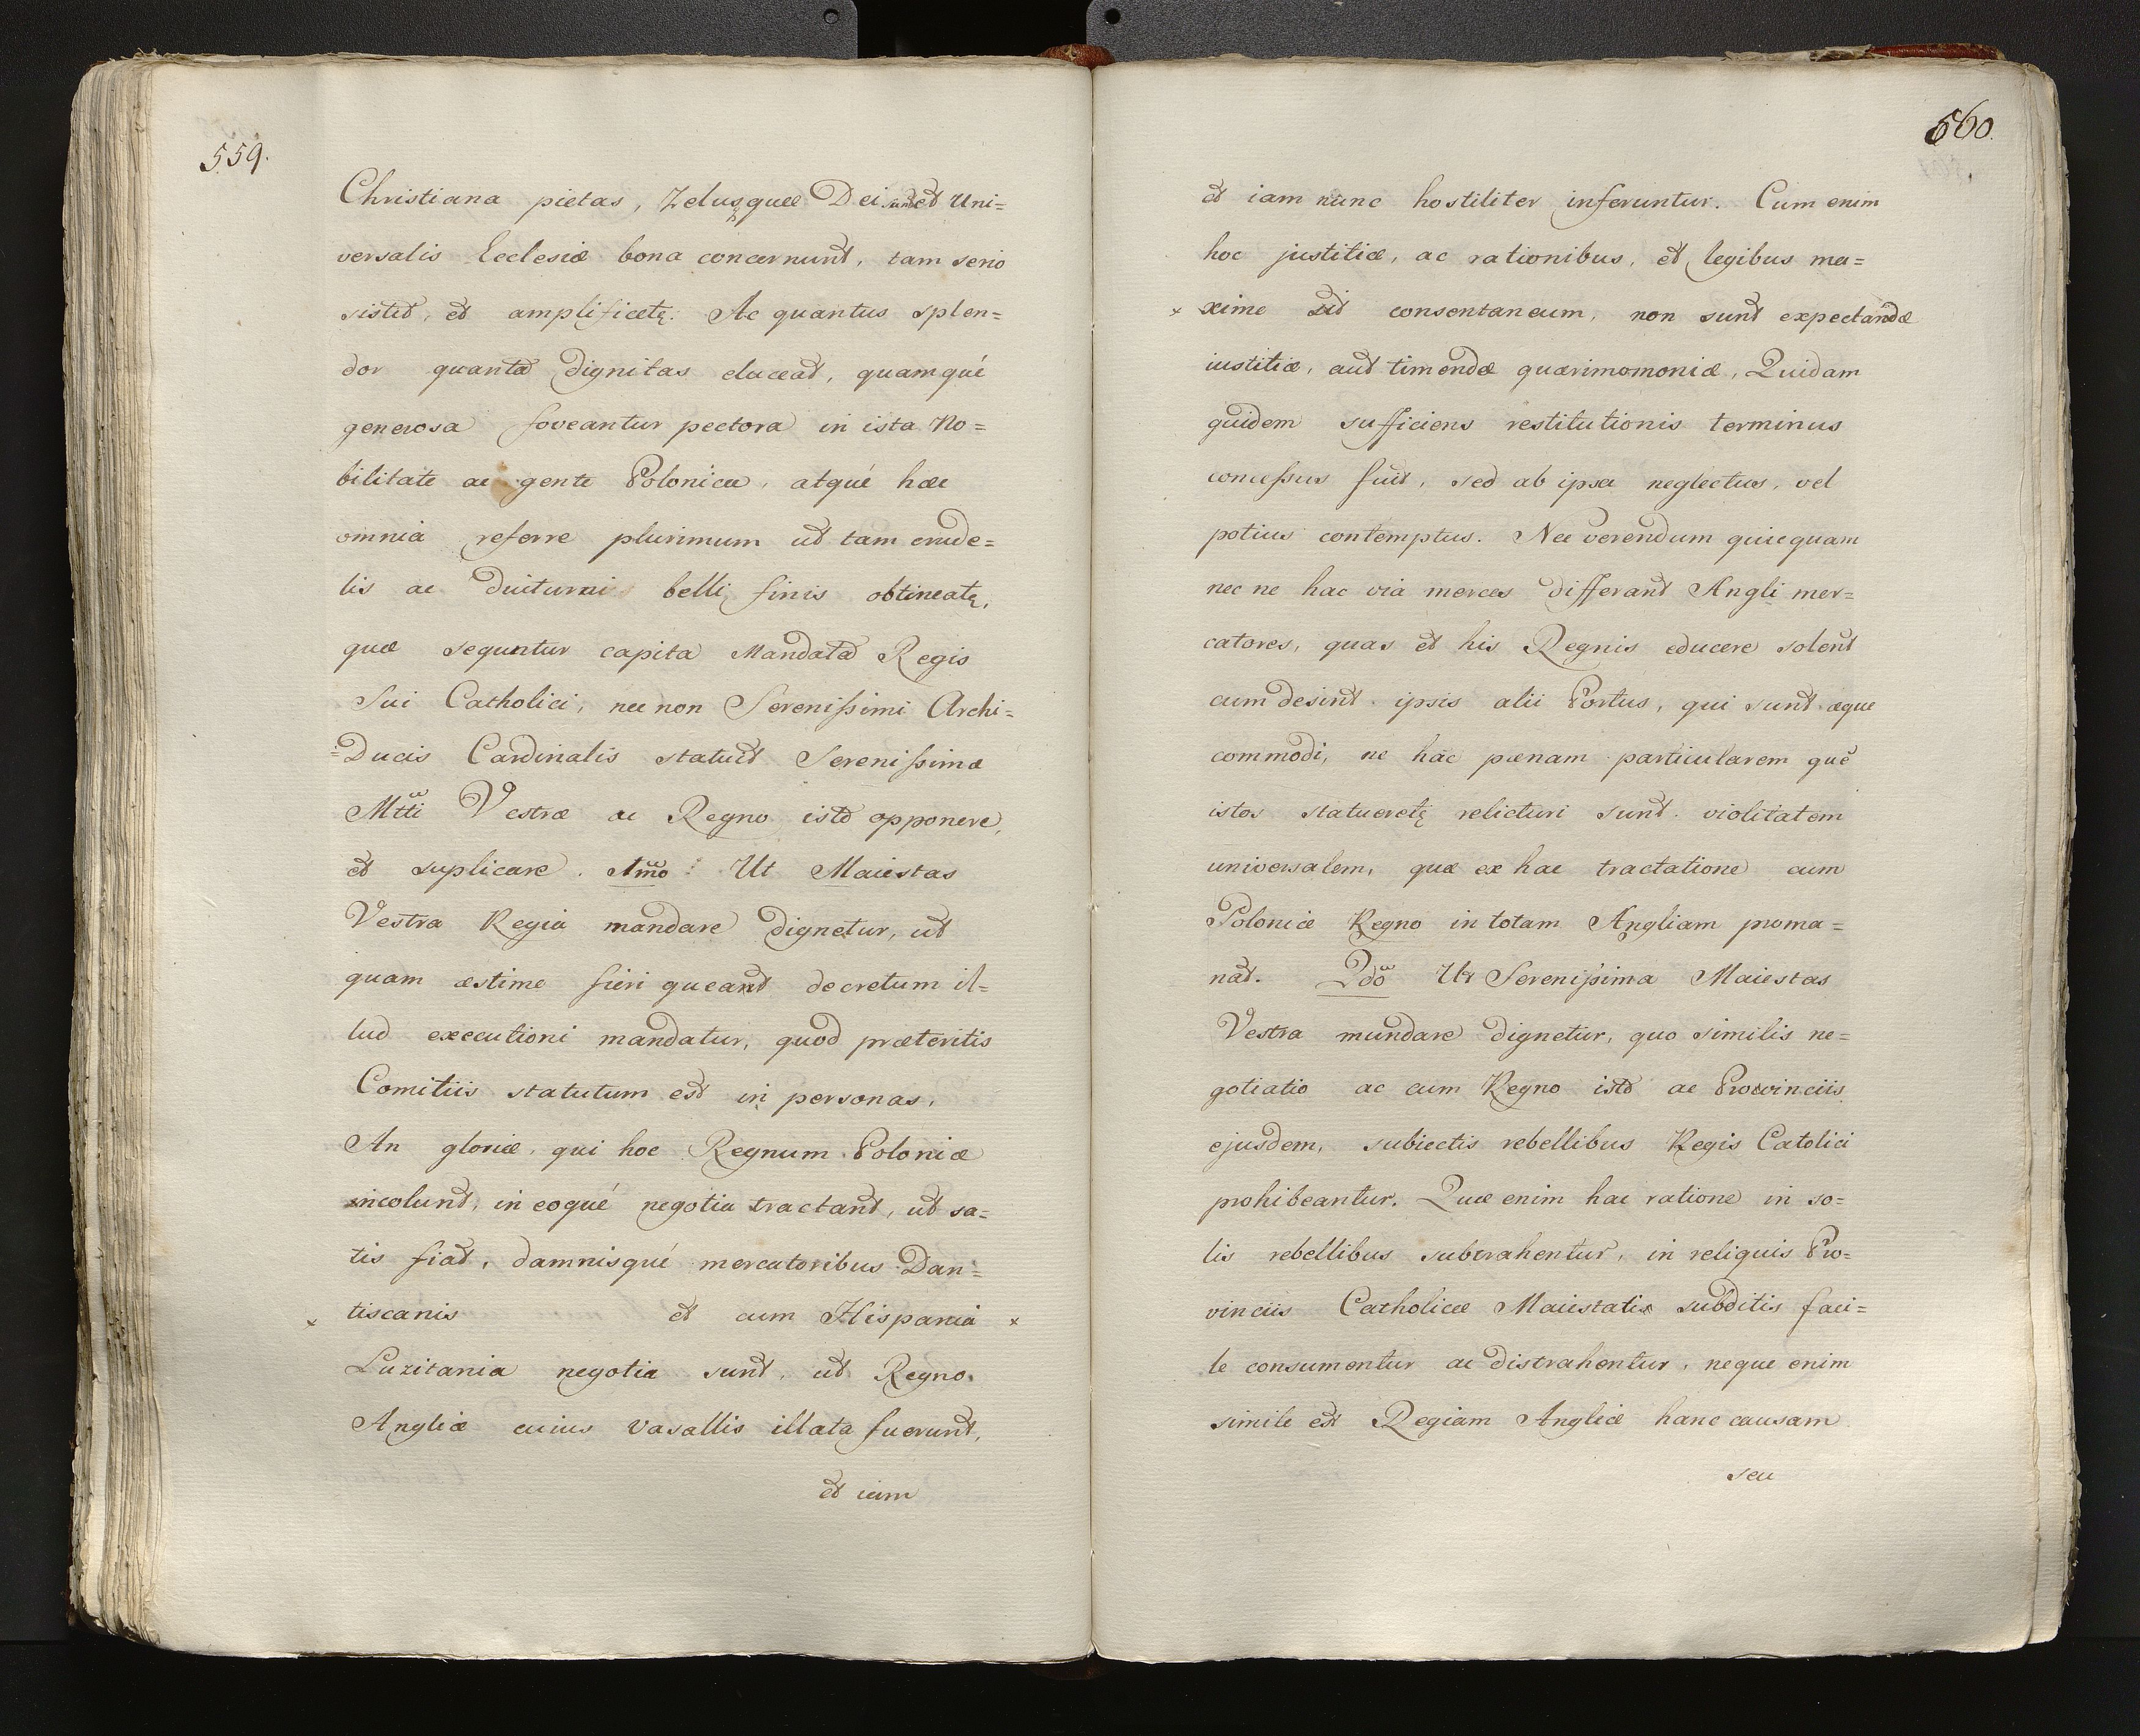 559.
Christiana pietas, Zelusque Dei sunt et Uni=
versalis Ecclesiæ bona concernunt, tam serio
sistet, et amplificetę. Ac quantus splen=
dor quanta dignitas eluceat, quamqué
generosa foveantur pectora in ista No=
bilitate ac gente Polonica, atqué hæc
omnia referre plurimum ut tam crude=
lis ac diuturni belli finis obtineatę,
quæ sequntur capita Mandata Regis
Sui Catholici, nec non Serenissimi Archi=
=Ducis Cardinalis statuit Serenissimæ
Mtti Vestræ ac Regno isto opponere,
et suplicare. Imo: Ut Maiestas
Vestra Regia mandare dignetur, ut
quam æstime fieri queant decretum il=
lud executioni mandatur, quod præteritis
Comitiis statutum est in personas,
An gloriæ, qui hoc Regnum Poloniæ
incolunt, in eoqué negotia tractant, ut sa=
tis fiat, damnisqué mercatoribus Dan=
x tiscanis et cum Hispania x
Luzitania negotia sunt, ut Regno
Angliæ cuius vasallis illata fuerunt,
et iam
560.
et iam nunc hostiliter inferuntur. Cum enim
hoc justitiæ, ac rationibus, et legibus ma=
x xime sit consentaneum, non sunt expectandæ
iustitiæ, aut timendæ quærimomoniæ, Quidam
quidem sufficiens restitutionis terminus
concessus fuit, sed ab ipsa neglectus, vel
potius contemptus. Nec verendum quicquam
nec ne hac via merces differant Angli mer=
catores, quas et his Regnis educere solent
cum desint ipsis alii Portus, qui sunt æque
commodi, ne hác pænam particularem què
istos statueretę relicturi sunt violitatem
universalem, quæ ex hac tractatione cum
Poloniæ Regno in totam Angliam proma=
nat. 2do Ut Serenissima Maiestas
Vestra mandare dignetur, quo similis ne=
gotiatio ac cum Regno isto ac Provinciis
ejusdem, subiectis rebellibus Regis Catolici
prohibeantur. Quæ enim hac ratione in so=
lis rebellibus subtrahentur, in reliquis Pro=
vinciis Catholicæ Maiestatis subditis faci=
le consumentur ac distrahentur, neque enim
simile est Regiam Angliæ hanc causam
seu